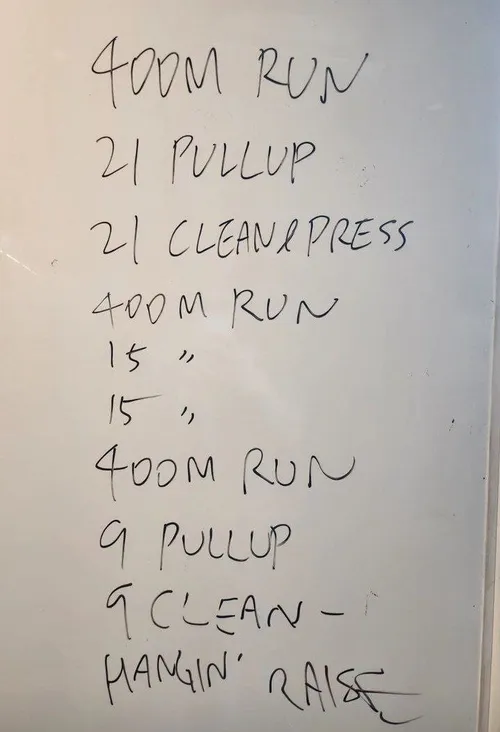 400M RUN
21 PULLUP
21 CLEAN&PRESS
400M RUN
15 "
15 "
400M RUN
9 PULLUP
9 CLEAN -
HANGIN' RAISE